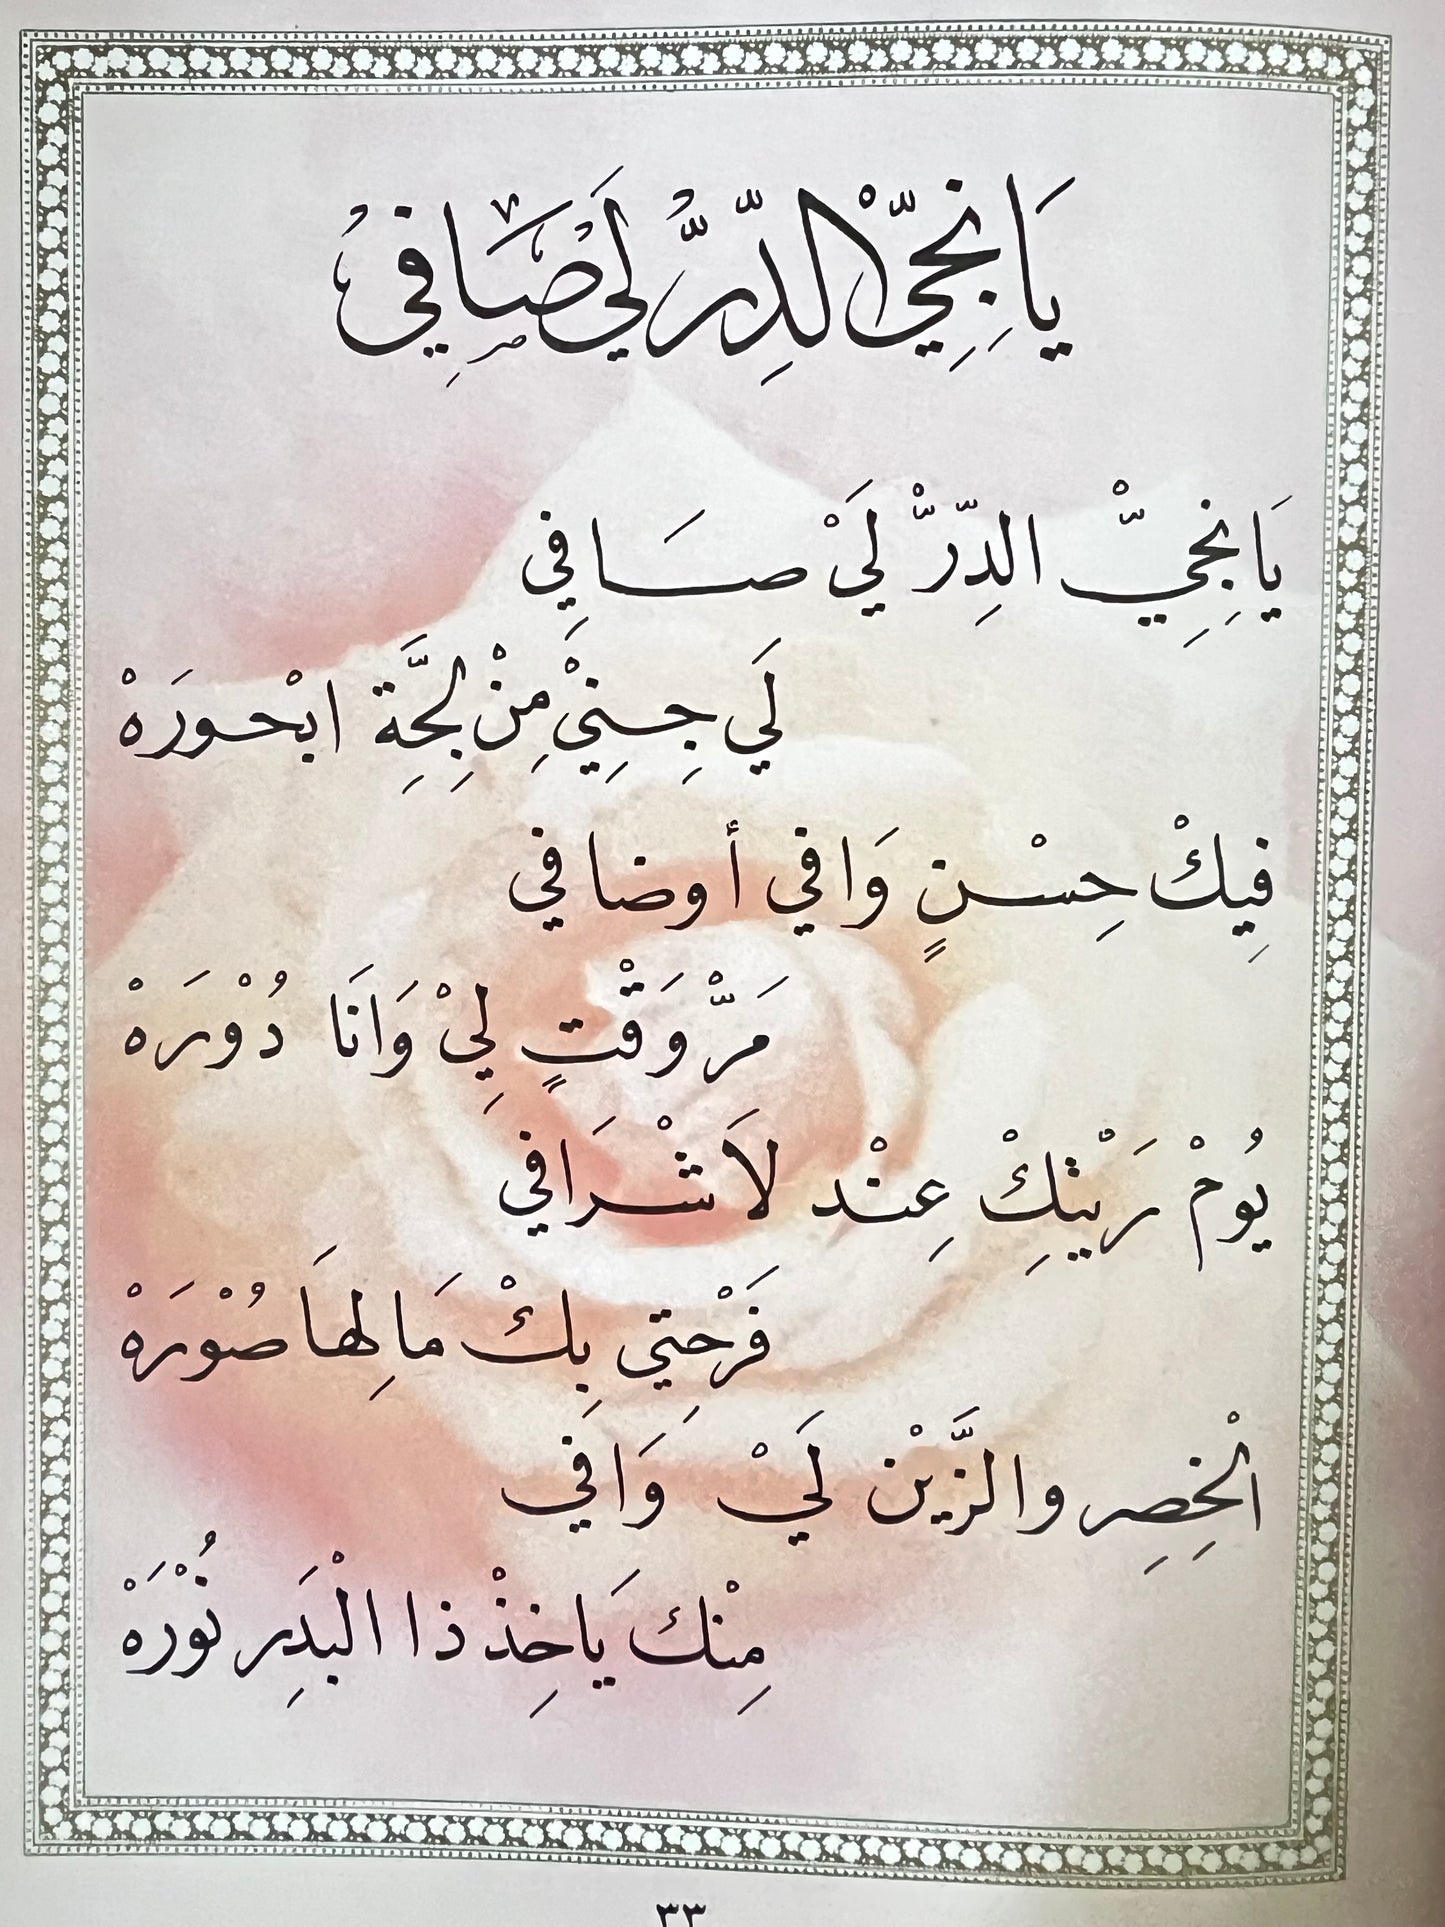 يَا نِجِيّْ الدِّرُّ لَي صَافِي
يَا نِجِيّْ الدِّرّْ لَيْ صَافِي
لَي جِنِيْ مِنْ لِجَّةِ ابْحورَهْ
فِيكْ حِسْنٍ وَافي أوضافي
مَرّْ وَقْتٍ لِيْ وَانَا دُوْرَهْ
يُومْ رَيْتِكْ عِنْد لاَشْرَافي
فَرْحتي بِكْ مَا لِهاَ صُوْرَهْ
الْخِصِر والزَّيْن لَيْ وَافي
مِنْك يَاخِذْ ذا الْبَدِر نُوْرَهْ
٣٣